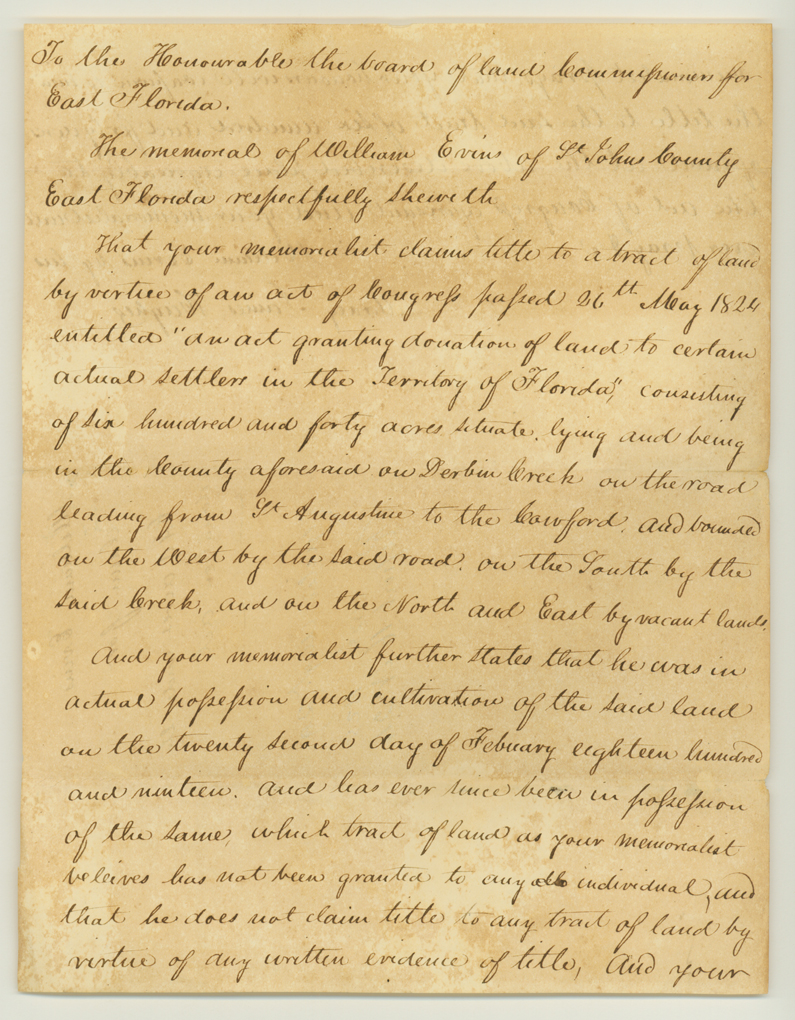 To the Honourable the board of land Commissioners for
East Florida.
The memorial of William Evins of St Johns County
East Florida respectfully sheweth
That your memorialist claims title to a tract of land
by vertue of an act of Congress passed 26th May 1824
entitled "an act granting donation of land to certain
actual settlers in the Territory of Florida", consisting
of six hundred and forty acres situate. lying and being
in the County aforesaid on Derbin Creek on the road
leading from St Augustine to the Cowford. and bounded
on the West by the said road. on the South by the
said Creek, and on the North and East by vacant lands.
And your memorialist further states that he was in
actual possession and cultivation of the said land
on the twenty second day of Febuary eighteen hundred
and ninteen. and has ever since been in possession
of the same, which tract of land as your memorialist
beleives has not been granted to any individual, and
that he does not claim title to any tract of land by
virtue of any written evidence of title, And your